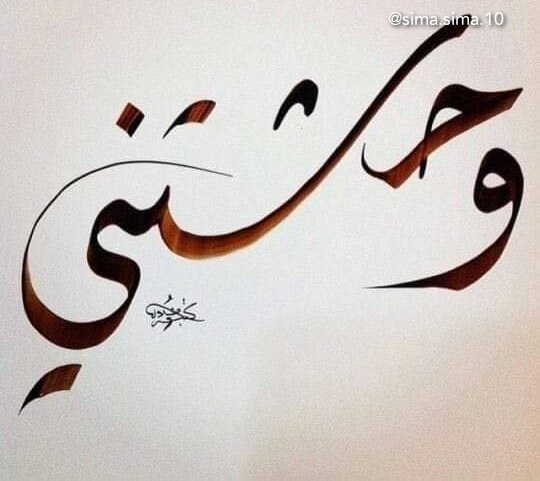 @sima.sima.10
وحشتني